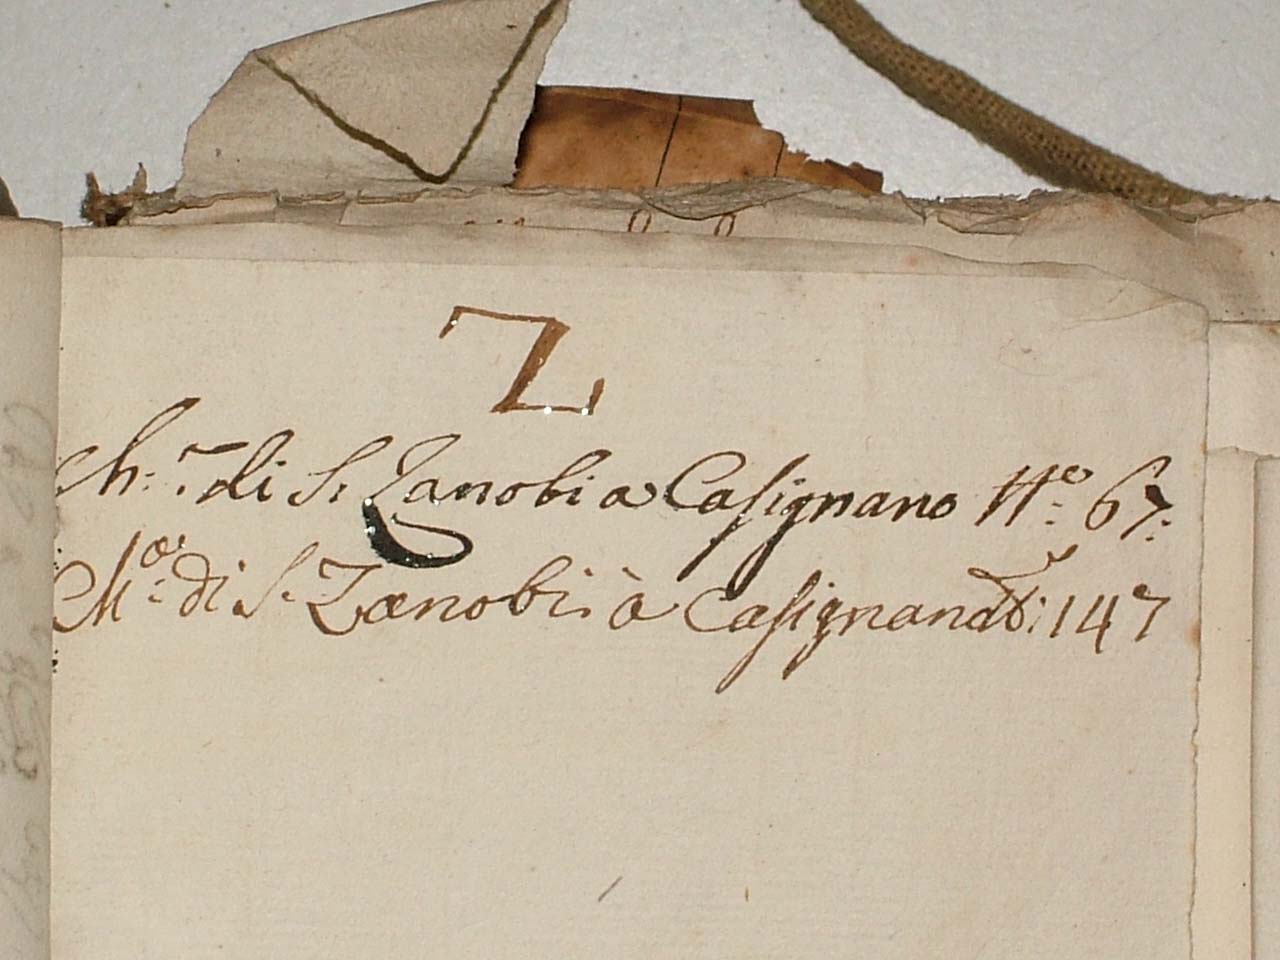 Z
Ch.ª di S. Zanobi a Casignano Nº: 67:
Mª: di S. Zanobi à Casignano 147